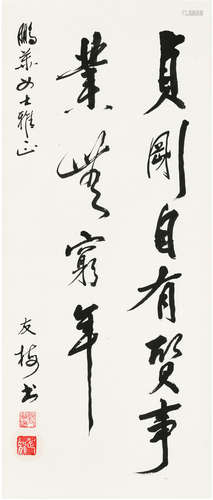 貞剛自有質事
業無窮年
鵬女士雅正
友梅书